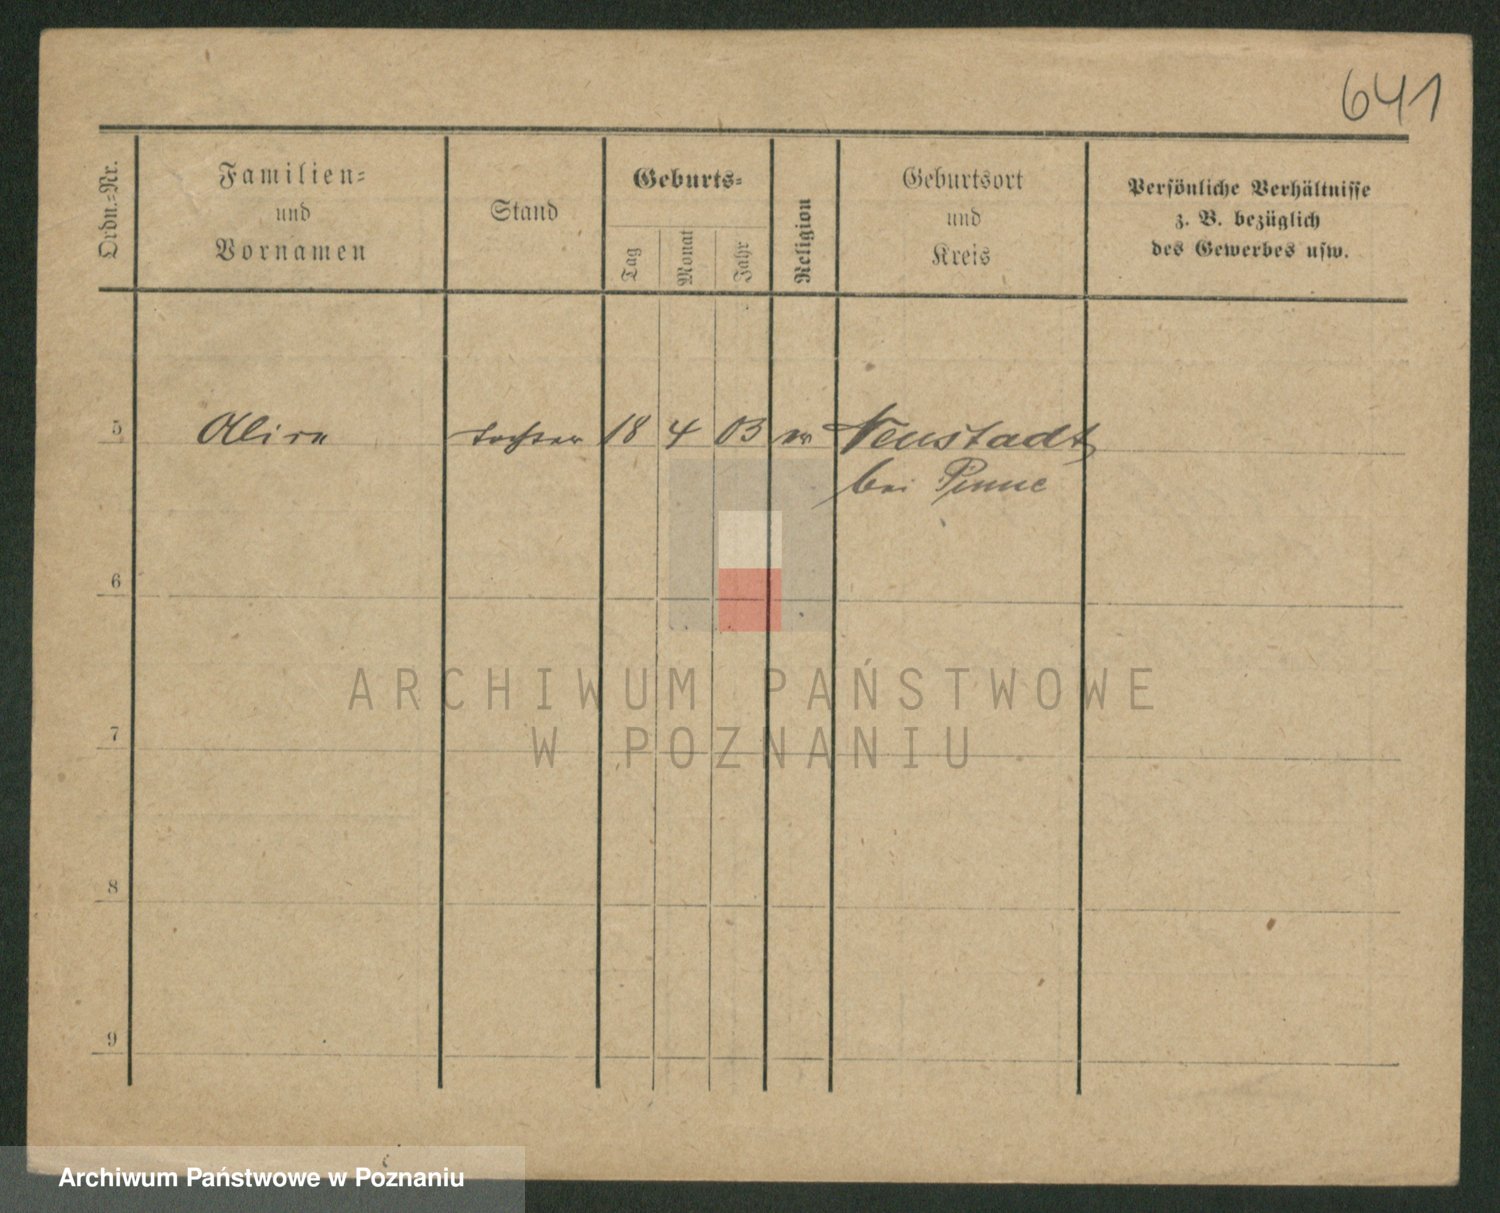 641
Ordn.=Nr.
Familien=
und
Vornamen
Stand
Geburts=
Tag
Monat
Jahr
Religion
Geburtsort
und
Kreis
Persönliche Verhältnisse
z. B. bezüglich
des Gewerbes usw.
5 Tochter 18 4 03 Neustadt
bei Pinne
6
7
8
9
ARCHIWUM PAŃSTWOWE
W POZNANIU
Archiwum Państwowe w Poznaniu